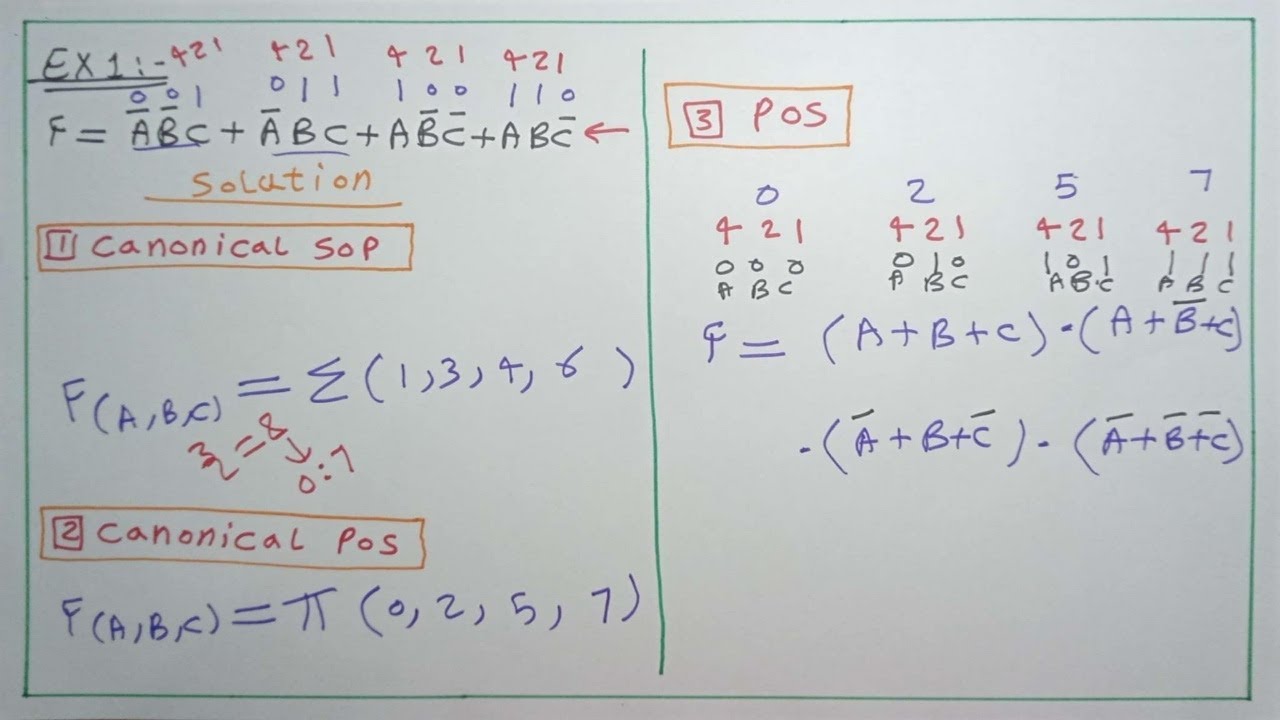 EX1:- 421 421 421 421
001 011 100 110
F = A̅B̅C + A̅BC + AB̅C̅ + ABC̅ ←
Solution
1 Canonical SOP
F(A,B,C) = Σ(1,3,4,6)
2³ = 8 → 0:7
2 Canonical POS
F(A,B,C) = π(0,2,5,7)
3 POS
0 2 5 7
421 421 421 421
000 010 101 111
ABC ABC ABC ABC
F = (A+B+C)·(A+B̅+C)
·(A̅+B+C̅)·(A̅+B̅+C̅)